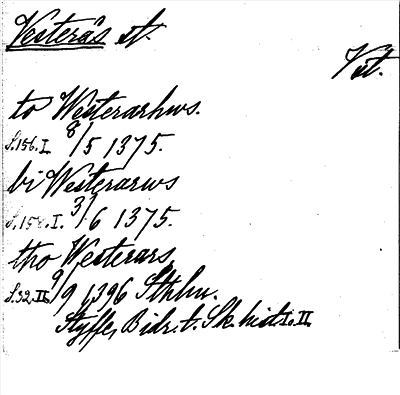 Vesterås st.
Vst.
to Westerarhws.
S.156.I. 8/5 1375.
bi Westerarws
S.158.I. 3/6 1375.
tho Westerars,
S.32.II. 9/9 1396 Sthlm.
Styffe, Bidr. t. Sk. hist. I. II.